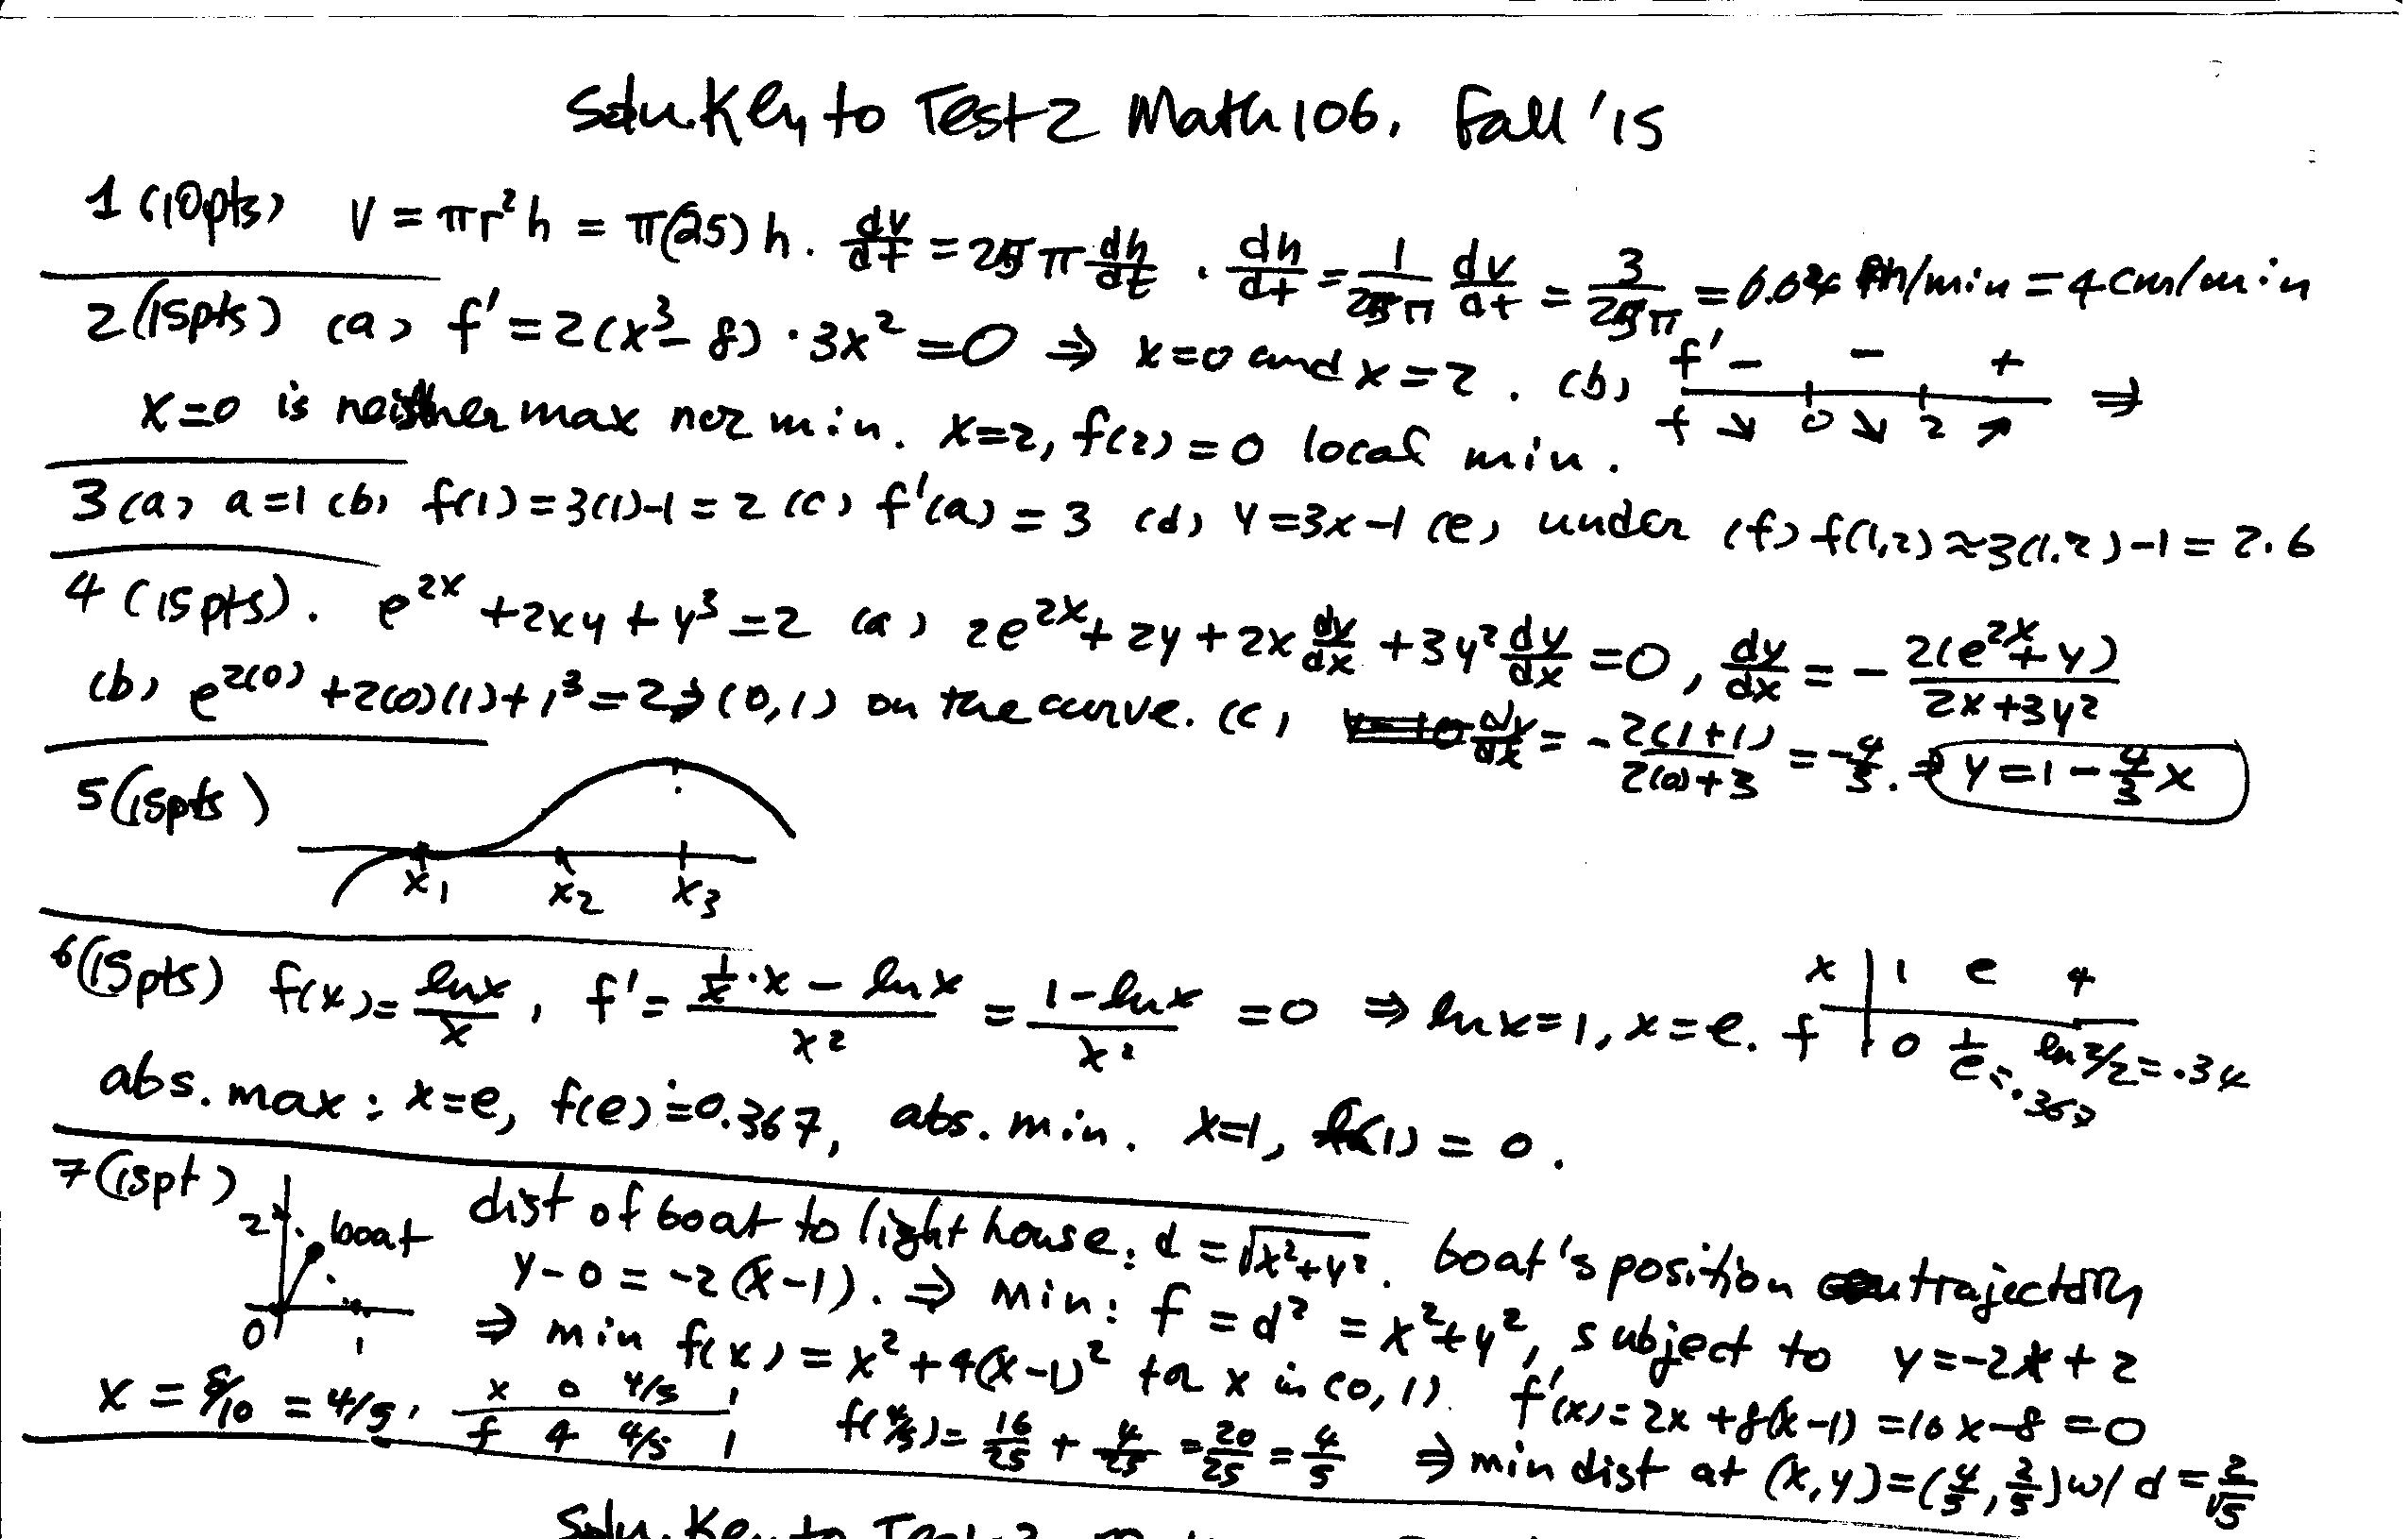 Soln. Key to Test 2 Math 106. Fall '15
1 (10pts) V = πr²h = π(25)h. dV/dt = 25π dh/dt. dh/dt = 1/25π dV/dt = 3/25π = 0.04 m/min = 4 cm/min
2 (15pts) (a) f' = 2(x³-8)·3x² = 0 ⇒ x=0 and x=2. (b) f' - - + ⇒
f ↘ 0 ↘ 2 ↗
x=0 is neither max nor min. x=2, f(2)=0 local min.
3 (a) a=1 (b) f(1)=3(1)-1=2 (c) f'(a)=3 (d) y=3x-1 (e) under (f) f(1.2)≈3(1.2)-1=2.6
4 (15pts). e^{2x} + 2xy + y³ = 2 (a) 2e^{2x} + 2y + 2x dy/dx + 3y² dy/dx = 0, dy/dx = - 2(e^{2x}+y)/(2x+3y²)
(b) e^{2(0)} + 2(0)(1) + 1³ = 2 ⇒ (0,1) on the curve. (c) dy/dx = - 2(1+1)/(2(0)+3) = -4/3. ⇒ y = 1 - 4/3 x
5 (15pts)
x₁ x₂ x₃
6 (15pts) f(x) = lnx/x, f' = (1/x·x - lnx)/x² = (1-lnx)/x² = 0 ⇒ lnx=1, x=e. x | 1 e 4
f | 0 1/e=.367 ln2/2=.34
abs. max: x=e, f(e)≐0.367, abs. min. x=1, f(1)=0.
7 (15pt) 2 boat 0 1 dist of boat to light house: d = √(x²+y²). boat's position on trajectory
y-0 = -2(x-1). ⇒ Min: f = d² = x²+y², subject to y=-2x+2
⇒ min f(x) = x²+4(x-1)² for x in (0,1). f'(x) = 2x+8(x-1) = 10x-8 = 0
x = 8/10 = 4/5. x 0 4/5 1
f 4 4/5 1 f(4/5) = 16/25 + 4/25 = 20/25 = 4/5 ⇒ min dist at (x,y)=(4/5, 2/5) w/ d = 2/√5
Soln. Key to Test 2